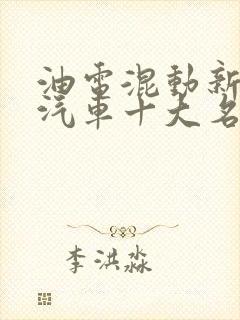 油電混動新
汽車十大名
李洪淼